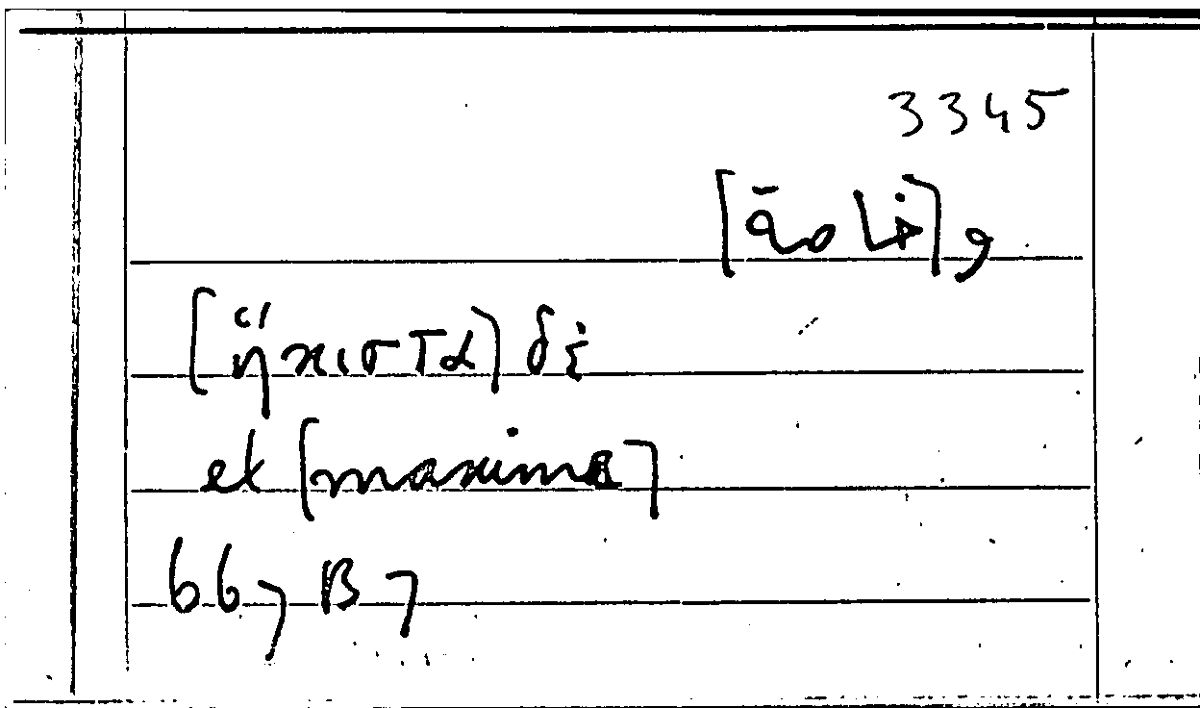 3345
[ἥκιστα] δὲ
et [maxima]
66, B 7